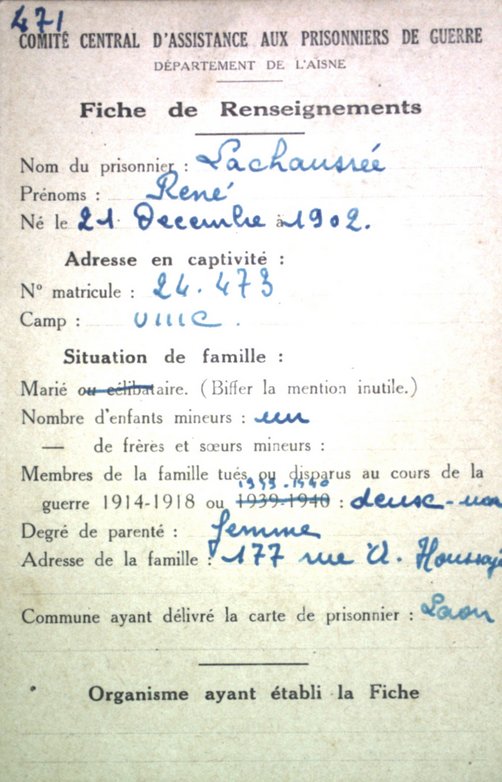 471
COMITÉ CENTRAL D'ASSISTANCE AUX PRISONNIERS DE GUERRE
DÉPARTEMENT DE L'AISNE
Fiche de Renseignements
Nom du prisonnier : Lachaussée
Prénoms : René
Né le 21 Decembre à 1902.
Adresse en captivité :
N° matricule : 24.473
Camp : VIIIC.
Situation de famille :
Marié ou célibataire. (Biffer la mention inutile.)
Nombre d'enfants mineurs : un
— de frères et sœurs mineurs :
Membres de la famille tués ou disparus au cours de la
1939-1940
guerre 1914-1918 ou 1939-1940 :
Degré de parenté : femme
Adresse de la famille : 177 rue A. Houssaye
Commune ayant délivré la carte de prisonnier : Laon
Organisme ayant établi la Fiche